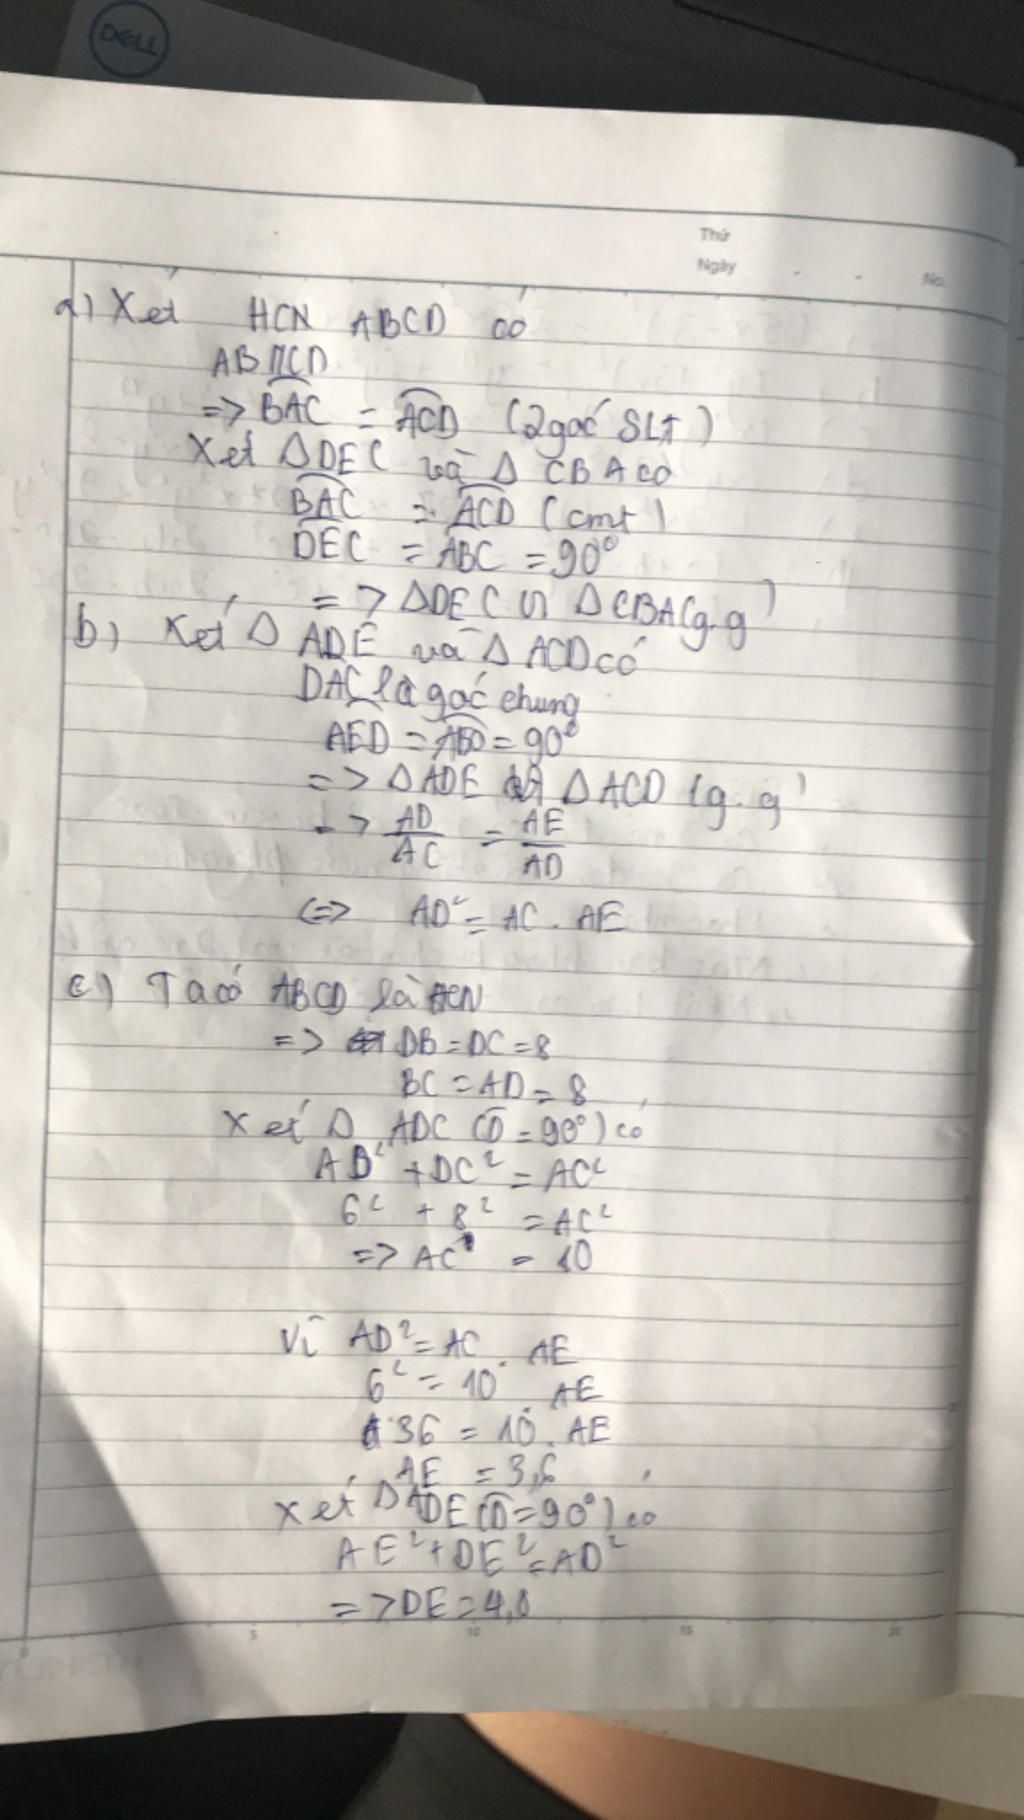 DELL
Thứ
Ngày
No.
a) Xét HCN ABCD có
AB//CD
=> BAC = ACD (2 góc SLT)
Xét ΔDEC và Δ CBA có
BAC = ACD (cmt)
DEC = ABC = 90°
=> ΔDEC ᔕ ΔCBA(g.g)
b) Xét Δ ADE và Δ ACD có
DAC là góc chung
AED = = 90°
=> ΔADE ᔕ ΔACD (g.g)
=> AD/AC = AE/AD
<=> AD² = AC . AE
c) Ta có ABCD là HCN
=> DB = DC = 8
BC = AD = 8
Xét Δ ADC (D = 90°) có
AB² + DC² = AC²
6² + 8² = AC²
=> AC = 10
Vì AD² = AC . AE
6² = 10 . AE
36 = 10 . AE
AE = 3,6
Xét ΔADE (D = 90°) có
AE² + DE² = AD²
=> DE = 4,8
5 10 15 20